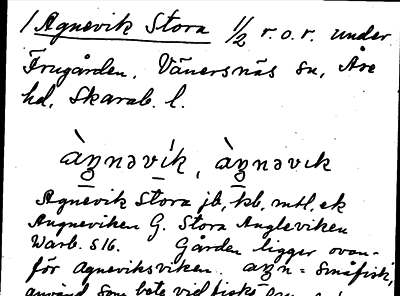 1 Agnevik Stora 1/2 r. o. r. under
Frugården, Vänersnäs sn, Åse
hd, Skarab. l.
àŋnəvík, àŋnəvɩk
Agnevik Stora jb, kb, mtl, ek
Angneviken G. Stora Angleviken
Warb. S16. Gården ligger ovan-
för Agneviksviken. aŋn = småfisk,
använd som bete vid fiske